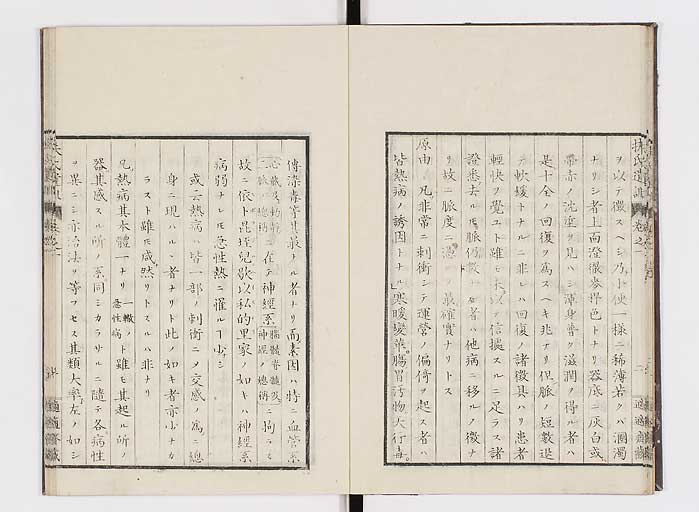 ヲ以テ徴スヘシ乃小便一様ニ稀薄若クハ溷濁
ナリシ者上面澄徹麥稈色トナリ器底ニ灰白或
帯赤ノ沈垽ヲ見ハシ渾身普ク滋潤ヲ得ル者ハ
是十全ノ回復ヲ為スヘキ兆ナリ但脈ノ短數遅
テ軟緩トナルニ非レハ回復ノ諸徴具ハリ患者
輕快ヲ覺ユト雖モ未以テ信據スルニ足ラス諸
證悉ク去ルモ脈仍數ナル者ハ他病ニ移ルノ徴ナ
リ故ニ脈度ニ憑ルヲ最確實ナリトス
原由 凡非常ニ刺衝シテ運營ノ偏倚ヲ起ス者ハ
皆熱病ノ誘因トナル寒暖變革腸胃汚物大行毒
扶氏遺訓 卷之一
二 適適齋藏
傳染毒等其最ナル者ナリ而素因ハ特ニ血管系
心臓及動靜二脈ノ總稱ニ在テ神經系腦髓脊髓及神經ノ總稱ニ拘ラス
故ニ依卜昆垤兒歇以私的里家ノ如キハ神經系
病弱ナレモ急性熱ニ罹ルヿ少シ
或云熱病ハ皆一部ノ刺衝ニメ交感ノ為ニ總
身ニ現ハルヽ者ナリト此ノ如キ者亦少ナカ
ラスト雖モ咸然リトスルハ非ナリ
凡熱病其本體一ナリ一轍急性病ト雖モ其起ル所ノ
器其感スル所ノ系同シカラサルニ隨テ各病性
ヲ異ニシ亦治法ヲ等フセス其類大率左ノ如シ